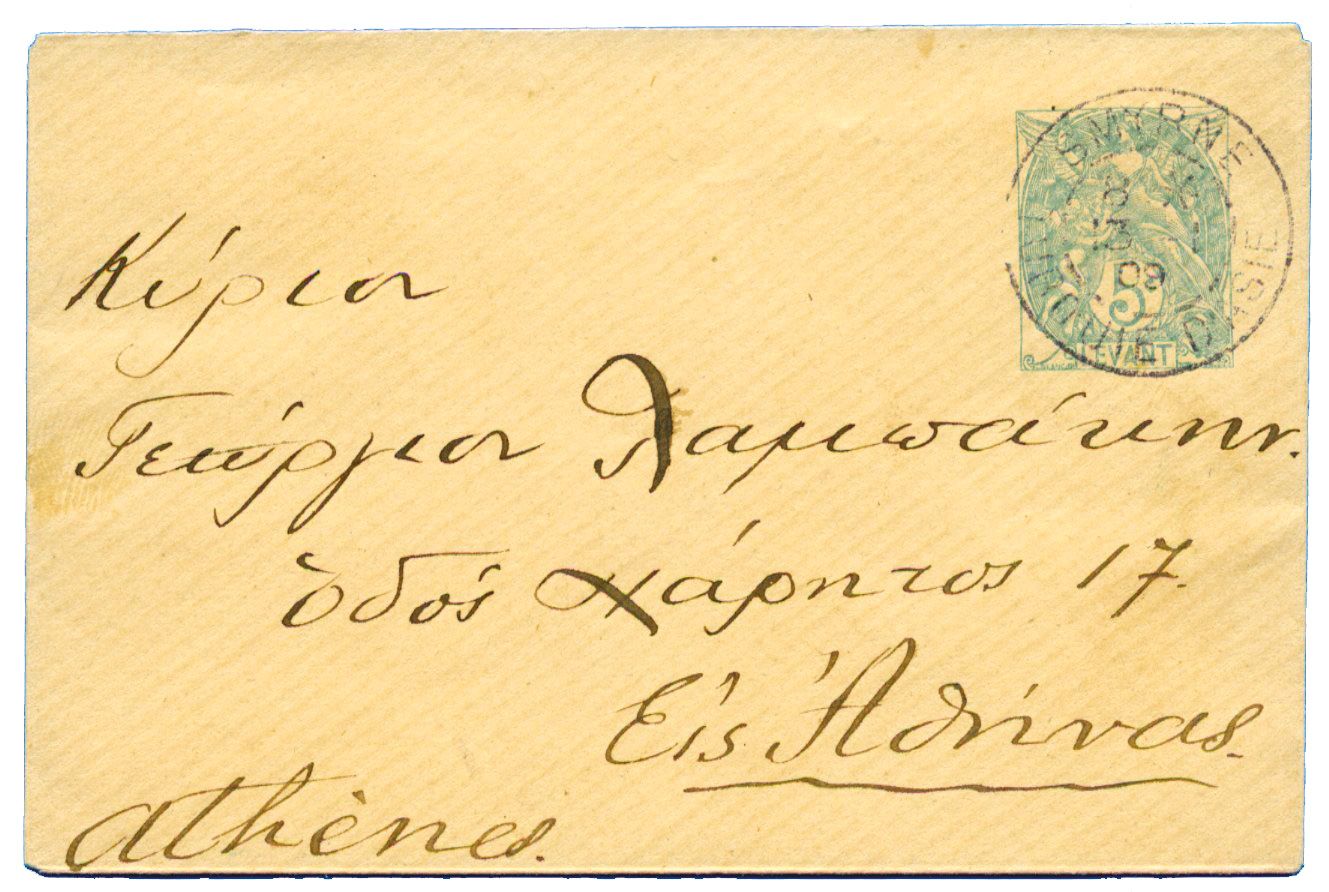 SMYRNE
TURQUIE D'ASIE
09
5
LEVANT
Κύριον
Γεώργιον Λαμπάκην.
ὁδός Χάρητος 17.
Εἰς Ἀθήνας.
Athènes.